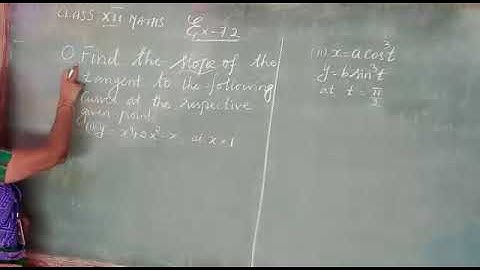 CLASS XII MATHS Ex-7.2
① Find the slope of the
tangent to the following
curves at the respective
given point.
(i) y = x⁴+2x²-x at x=1
(ii) x=acos³t
y=bsin³t
at t=π/2